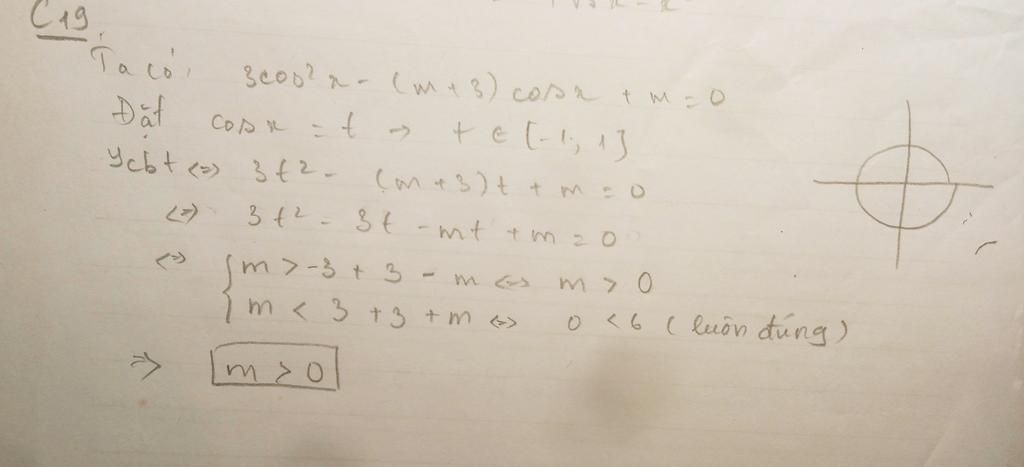 C19,
Ta có, 3cos²x - (m+3) cosx + m = 0
Đặt cosx = t → t ∈ [-1; 1]
Ycbt <=> 3t² - (m+3)t + m = 0
<=> 3t² - 3t - mt + m = 0
<=> { m > -3 + 3 - m <=> m > 0
m < 3 + 3 + m <=> 0 < 6 (luôn đúng)
=> m > 0